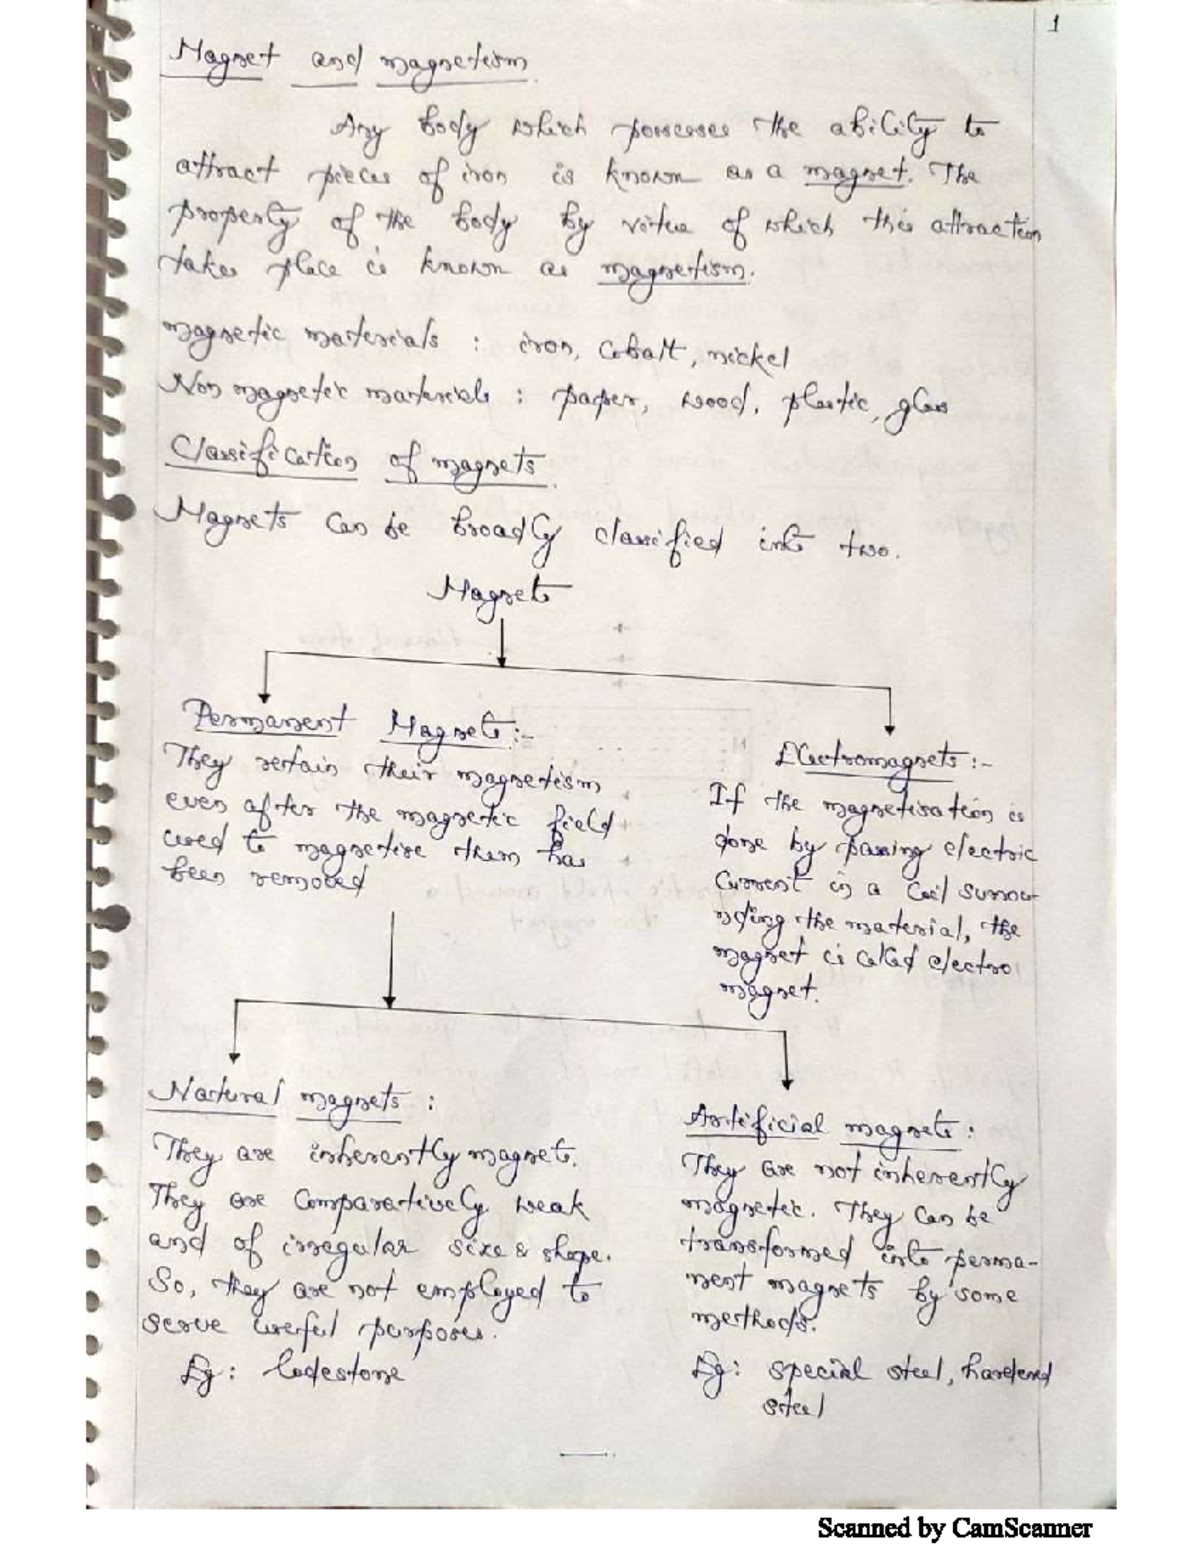 1
Magnet and magnetism.
Any body which possesses the ability to
attract pieces of iron is known as a magnet. The
property of the body by virtue of which this attraction
takes place is known as magnetism.
magnetic materials : iron, cobalt, nickel
Non magnetic materials : paper, wood, plastic, glass
Classification of magnets.
Magnets can be broadly classified into two.
Magnets
Permanent Magnets :-
They retain their magnetism
even after the magnetic field
used to magnetise them has
been removed
Electromagnets :-
If the magnetisation is
done by passing electric
current in a coil surrou-
nding the material, the
magnet is called electro
magnet.
Natural magnets :
They are inherently magnets.
They are comparatively weak
and of irregular size & shape.
So, they are not employed to
serve useful purposes.
Eg : lodestone
Artificial magnets :
They are not inherently
magnetic. They can be
transformed into perma-
nent magnets by some
methods.
Eg : special steel, hardened
steel
Scanned by CamScanner